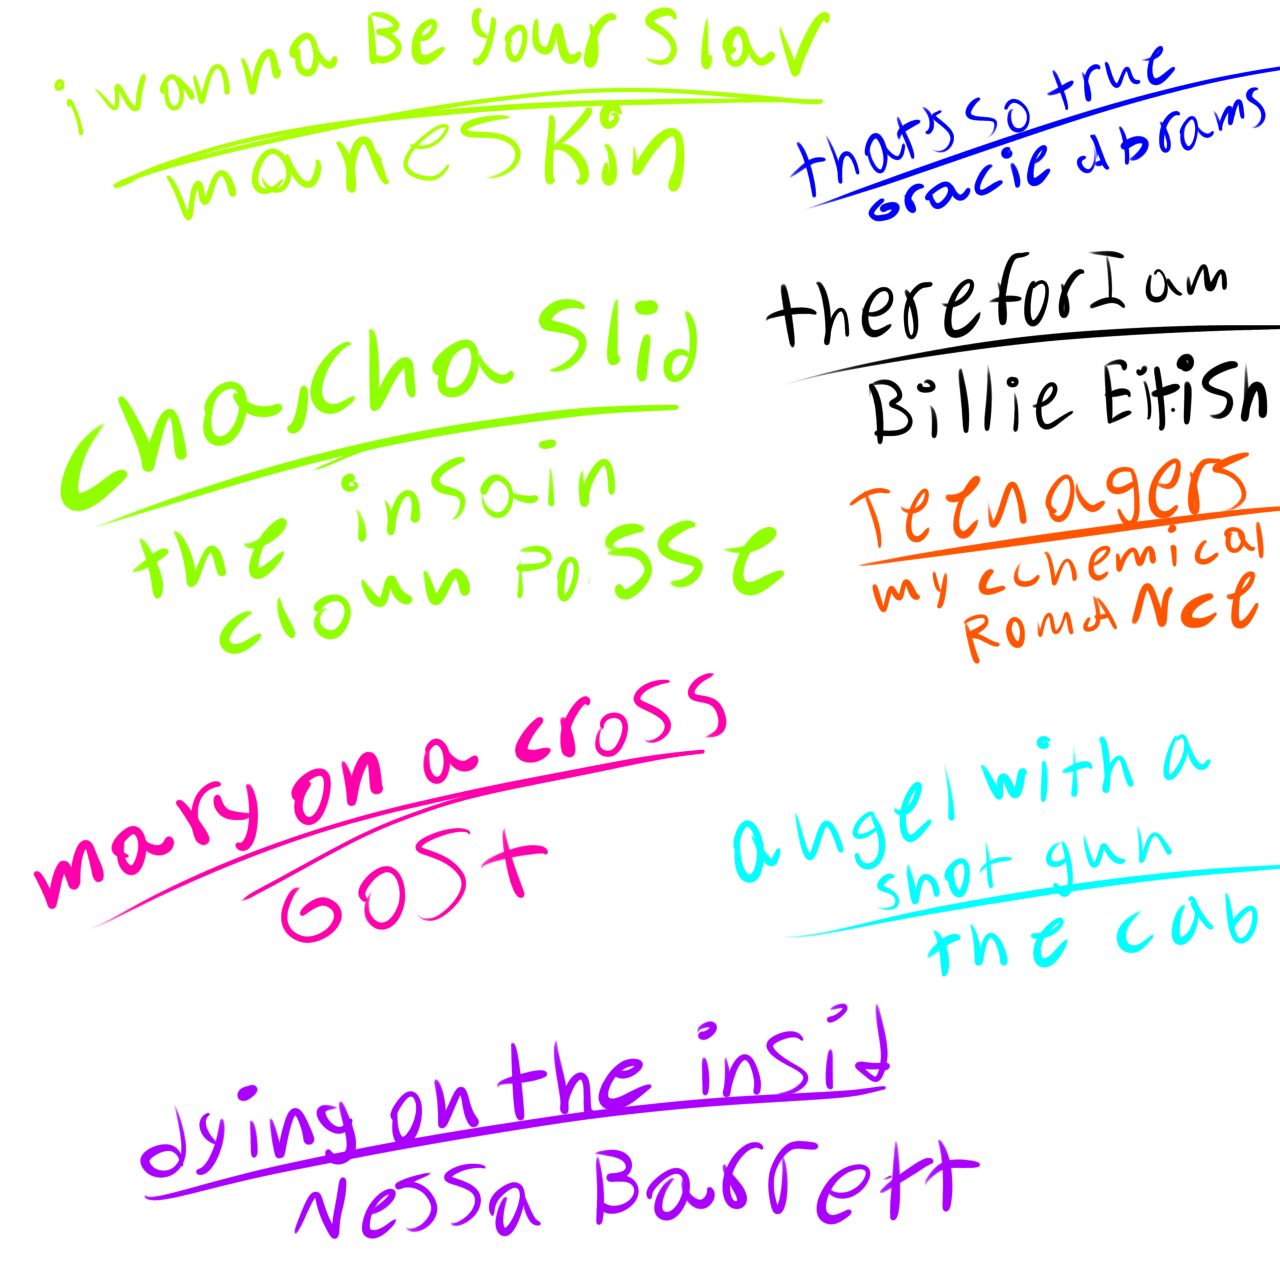 i wanna Be your Slav
maneskin
that's so true
Gracie Abrams
cha,cha Slid
the insain
cloun Posse
therefor I am
Billie Eitish
Teenagers
my cchemical
ROMANce
mary on a cross
GOSt
angel with a
shot gun
the cab
dying on the insid
Nessa Barrett